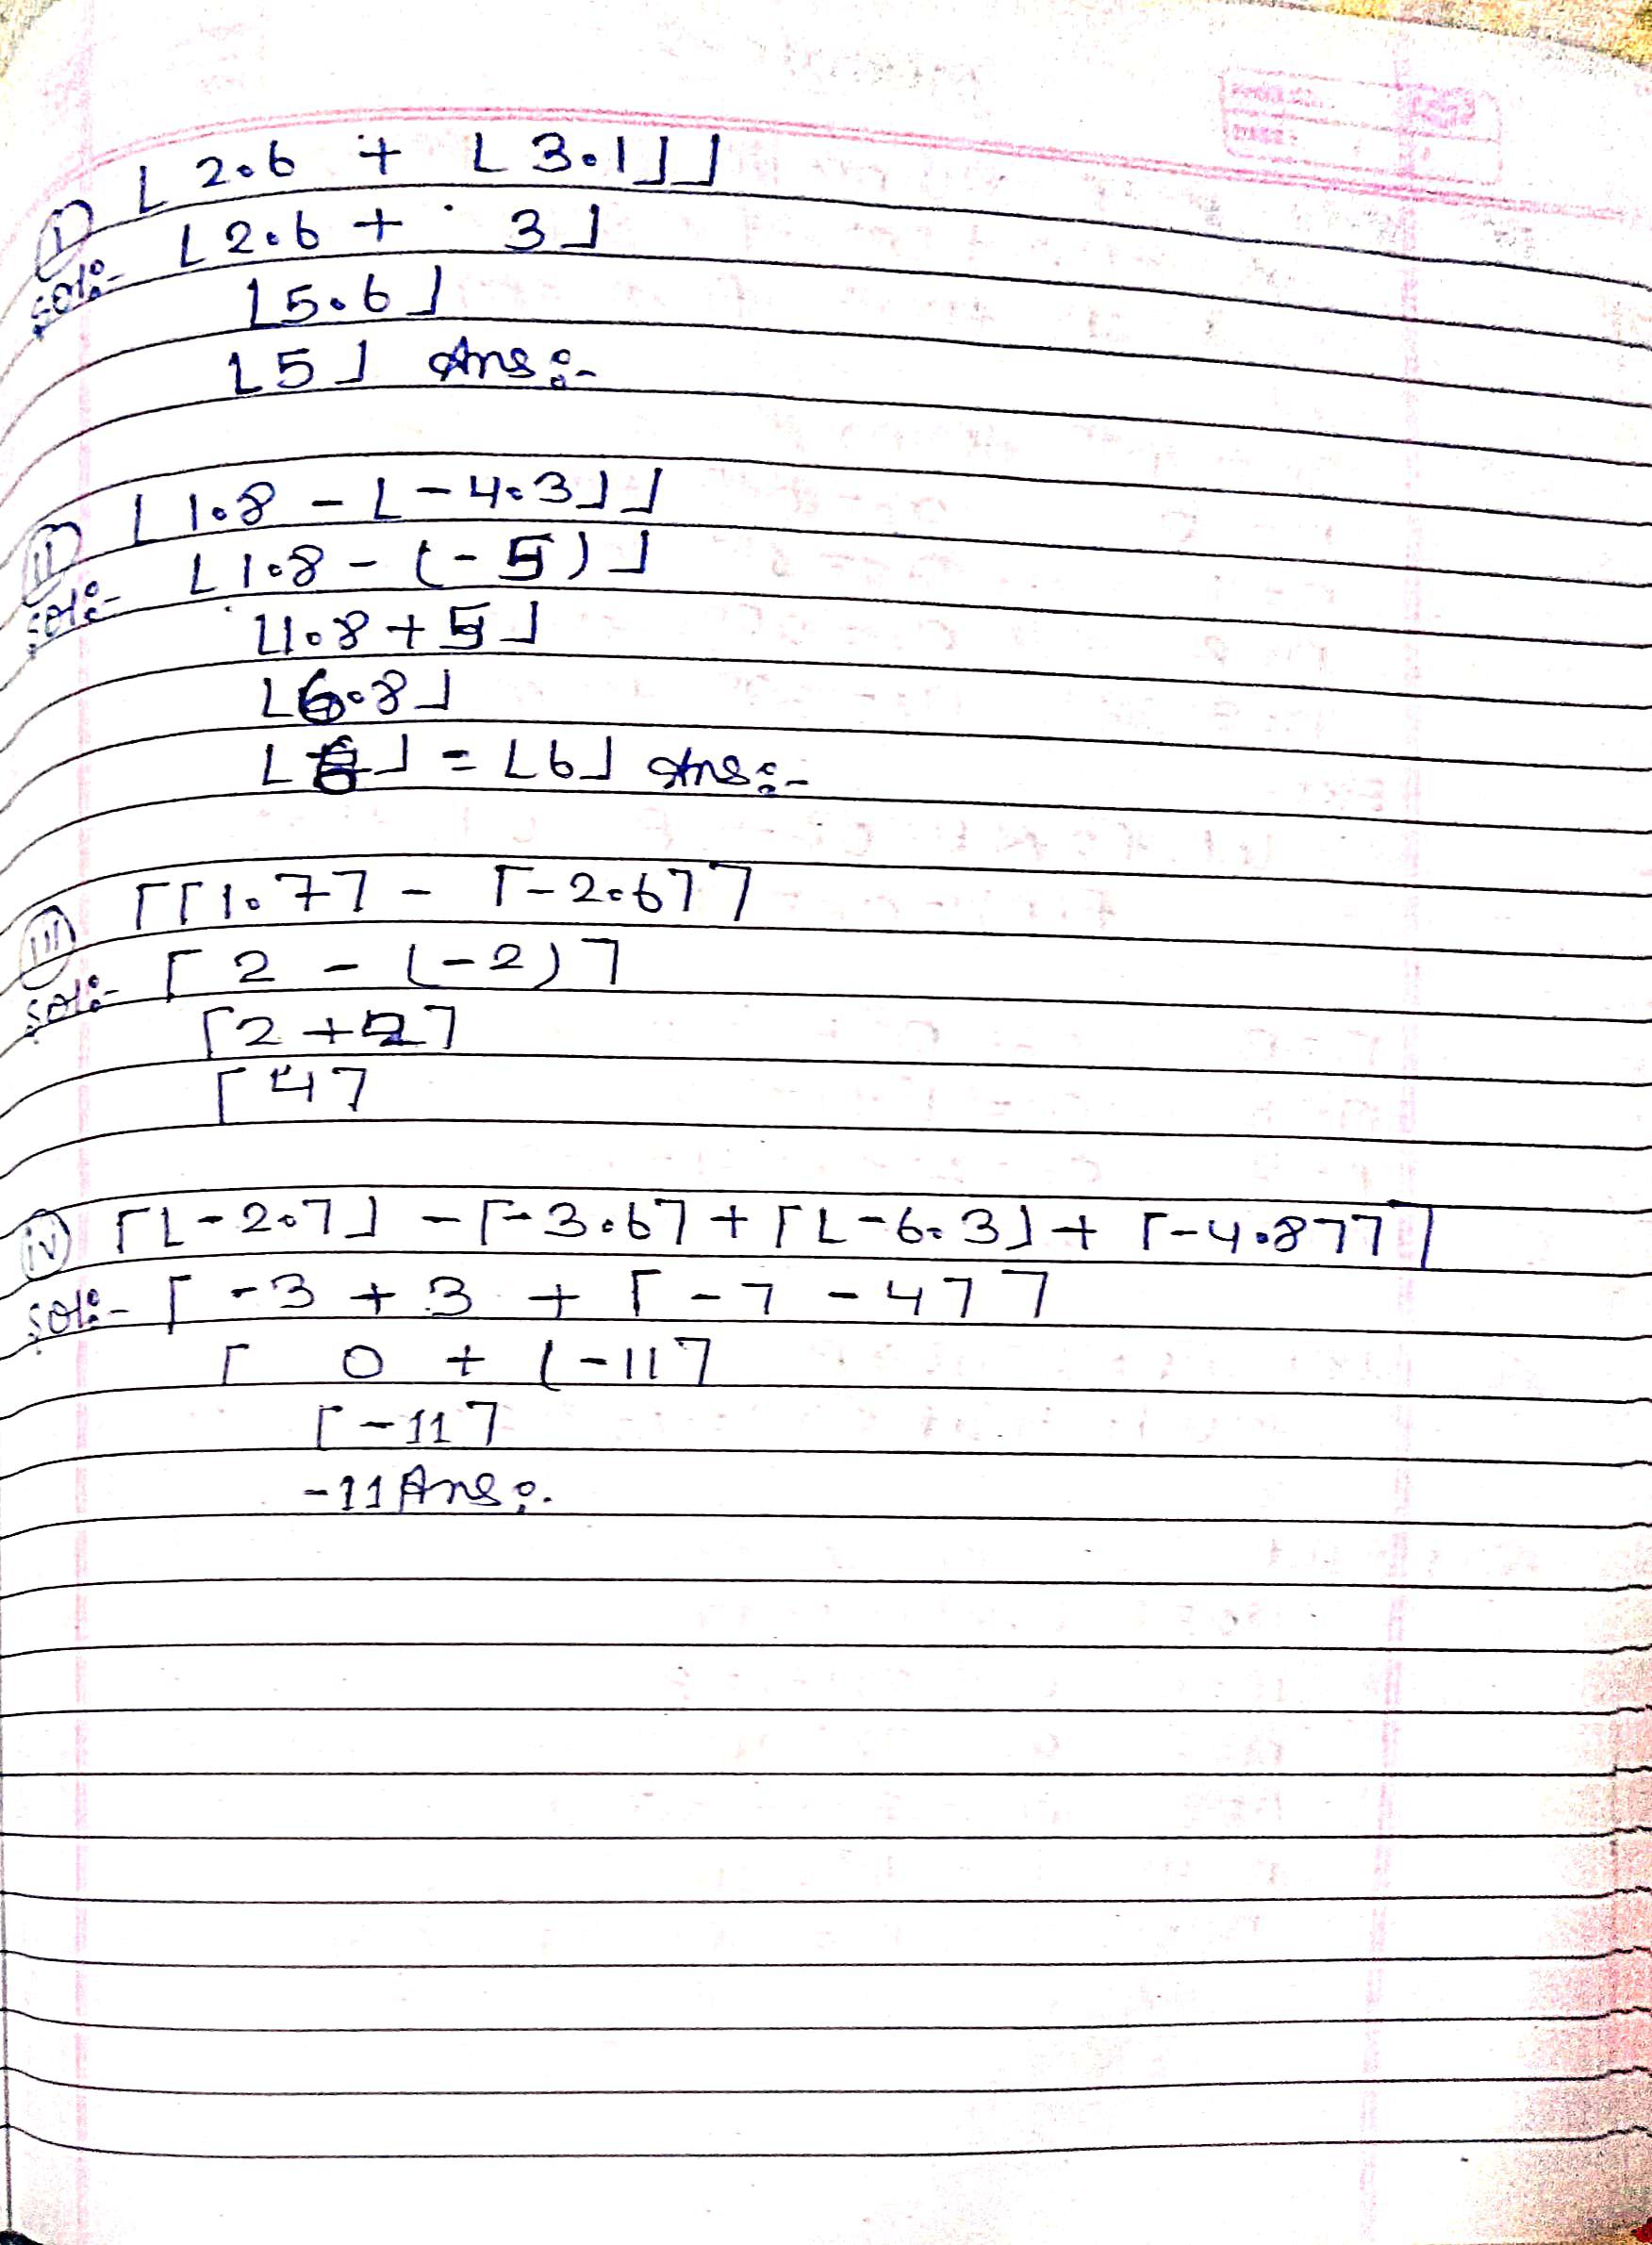 (i) ⌊ 2.6 + ⌊ 3.1⌋⌋
Sol:- ⌊ 2.6 + 3⌋
⌊5.6⌋
⌊5⌋ Ans:-
(ii) ⌊ 1.8 - ⌊ -4.3⌋⌋
Sol:- ⌊ 1.8 - (-5)⌋
⌊1.8 + 5⌋
⌊6.8⌋
⌊6⌋ = ⌊6⌋ Ans:-
(iii) ⌈⌈1.7⌉ - ⌈-2.6⌉⌉
Sol:- ⌈ 2 - (-2)⌉
⌈2 + 2⌉
⌈4⌉
(iv) ⌈⌊-2.7⌋ - ⌈-3.6⌉ + ⌈⌊-6.3⌋ + ⌈-4.8⌉⌉⌉
Sol:- ⌈ -3 + 3 + ⌈ -7 - 4⌉⌉
⌈ 0 + (-11⌉
⌈-11⌉
-11 Ans:.